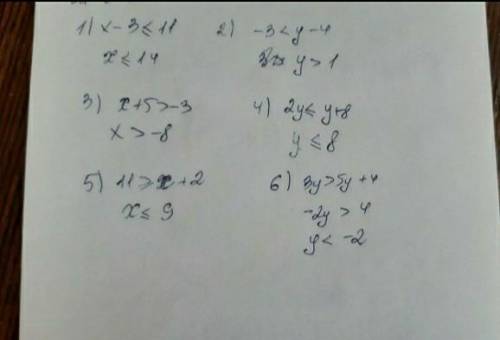 1) x - 3 ≤ 11
x ≤ 14
2) -3 < y - 4
y > 1
3) x + 5 > -3
x > -8
4) 2y ≤ y + 8
y ≤ 8
5) 11 ≥ x + 2
x ≤ 9
6) 3y > 5y + 4
-2y > 4
y < -2